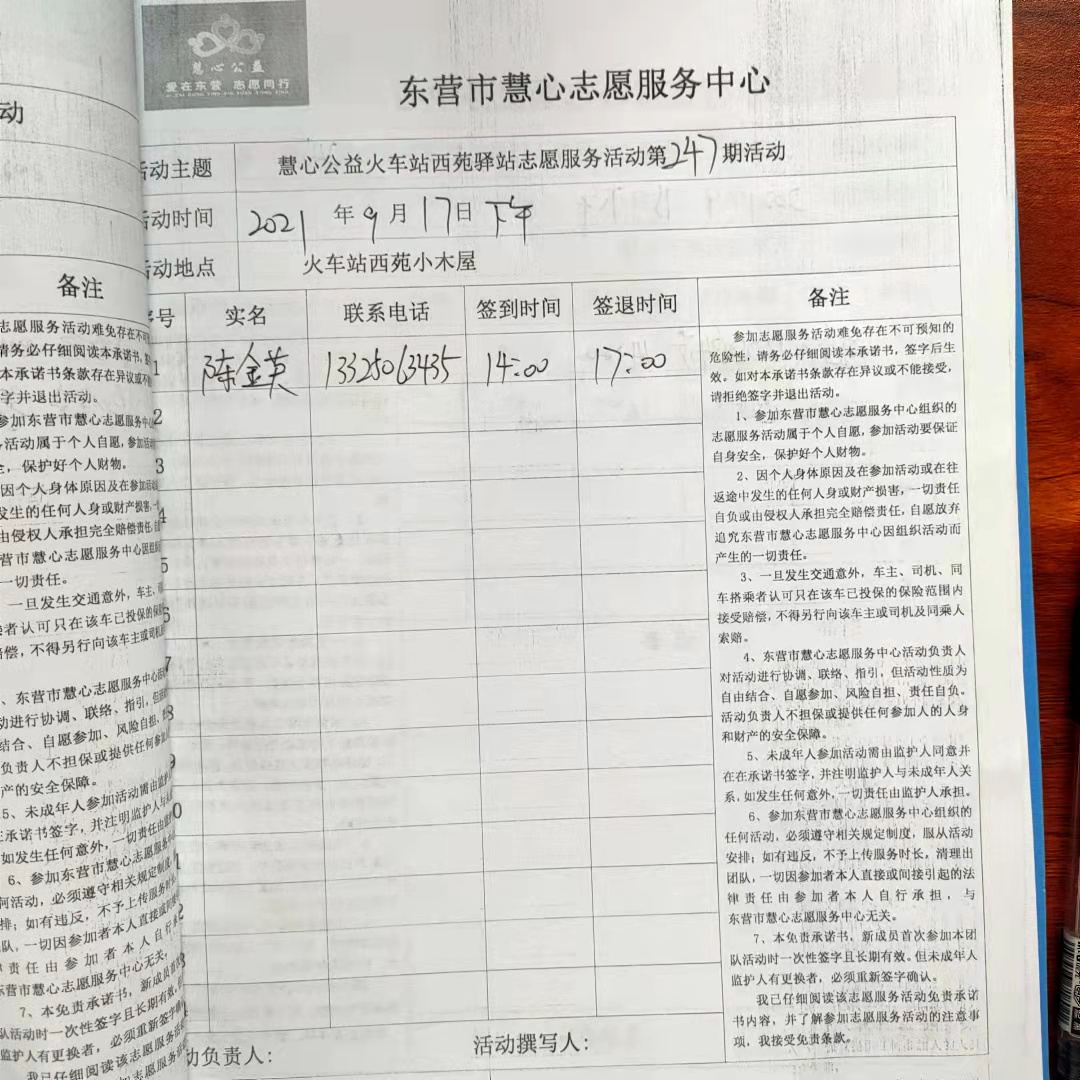 动
备注
志愿服务活动难免存在不可预
请务必仔细阅读本承诺书，
本承诺书条款存在异议或不能
字并退出活动。
参加东营市慧心志愿服务中心
活动属于个人自愿，参加活动
全，保护好个人财物。
因个人身体原因及在参加活动
发生的任何人身或财产损害，一
由侵权人承担完全赔偿责任，自
营市慧心志愿服务中心因组织
一切责任。
一旦发生交通意外，车主、
乘者认可只在该车已投保的保
赔偿，不得另行向该车主或司机
、东营市慧心志愿服务中心活
动进行协调、联络、指引，但
结合、自愿参加、风险自担、
负责人不担保或提供任何参加人
产的安全保障。
5、未成年人参加活动需由监护
在承诺书签字，并注明监护人与未
如发生任何意外，一切责任由
6、参加东营市慧心志愿服务中
何活动，必须遵守相关规定制度，
排；如有违反，不予上传服务时长，
队，一切因参加者本人直接或间
责任由参加者本人自行
东营市慧心志愿服务中心无关，
7、本免责承诺书，新成员首
队活动时一次性签字且长期有效，
监护人有更换者，必须重新签字
我已仔细阅读该志愿服务活
慧心公益
爱在东营 志愿同行
东营市慧心志愿服务中心
活动主题 慧心公益火车站西苑驿站志愿服务活动第247期活动
活动时间 2021 年 9 月 17日 下午
活动地点 火车站西苑小木屋
序号 实名 联系电话 签到时间 签退时间 备注
1 陈金英 13325063435 14:00 17:00
2
3
4
5
6
7
8
9
参加志愿服务活动难免存在不可预知的
危险性，请务必仔细阅读本承诺书，签字后生
效。如对本承诺书条款存在异议或不能接受，
请拒绝签字并退出活动。
1、参加东营市慧心志愿服务中心组织的
志愿服务活动属于个人自愿，参加活动要保证
自身安全，保护好个人财物。
2、因个人身体原因及在参加活动或在往
返途中发生的任何人身或财产损害，一切责任
自负或由侵权人承担完全赔偿责任，自愿放弃
追究东营市慧心志愿服务中心因组织活动而
产生的一切责任。
3、一旦发生交通意外，车主、司机、同
车搭乘者认可只在该车已投保的保险范围内
接受赔偿，不得另行向该车主或司机及同乘人
索赔。
4、东营市慧心志愿服务中心活动负责人
对活动进行协调、联络、指引，但活动性质为
自由结合、自愿参加、风险自担、责任自负。
活动负责人不担保或提供任何参加人的人身
和财产的安全保障。
5、未成年人参加活动需由监护人同意并
在在承诺书签字，并注明监护人与未成年人关
系，如发生任何意外，一切责任由监护人承担。
6、参加东营市慧心志愿服务中心组织的
任何活动，必须遵守相关规定制度，服从活动
安排；如有违反，不予上传服务时长，清理出
团队，一切因参加者本人直接或间接引起的法
律责任由参加者本人自行承担，与
东营市慧心志愿服务中心无关。
7、本免责承诺书，新成员首次参加本团
队活动时一次性签字且长期有效。但未成年人
监护人有更换者，必须重新签字确认。
我已仔细阅读该志愿服务活动免责承诺
书内容，并了解参加志愿服务活动的注意事
项，我接受免责条款。
动负责人： 活动撰写人：